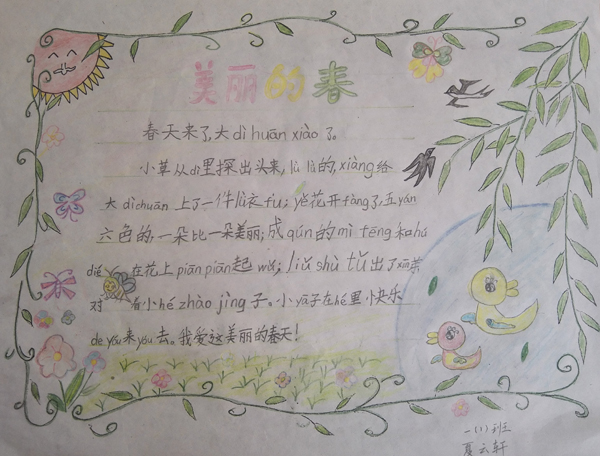 美丽的春
春天来了,大dì huān xiào了。
小草从dì里探出头来,lǜ lǜ的,xiàng给
大dì chuān上了一件lǜ衣fu;yě花开fàng了,五yán
六色的,一朵比一朵美丽;成qún的mì fēng和hú
dié在花上piān piān起wǔ;liǔ shù tǔ出了xīn芽
对着小hé zhào jìng子。小yā子在hé里快乐
de yóu来yóu去。我爱这美丽的春天!
一(1)班
夏云轩